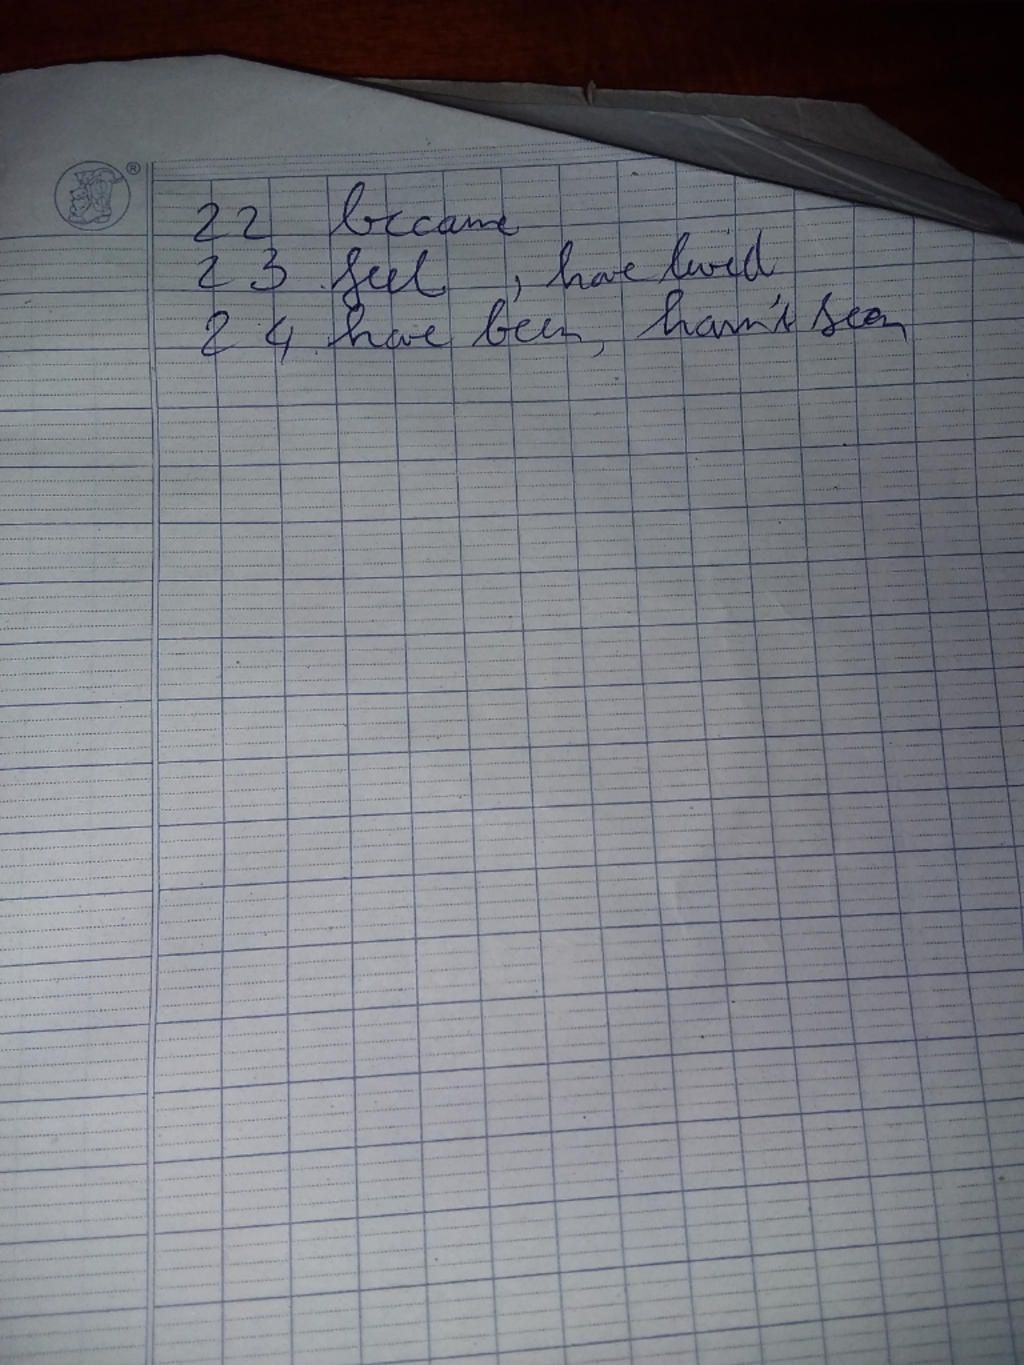 22 became
23 feel , have lived
24 have been, hasn't seen
®